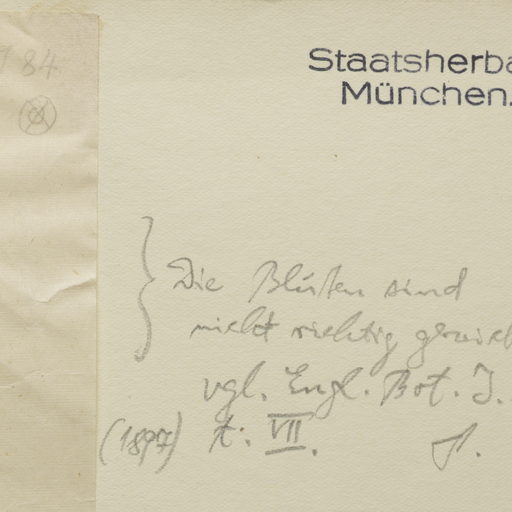 84
Staatsherba
München.
Die Blüten sind
nicht richtig gezeich
vgl. Engl. Bot. J.
(1897) t: VII.